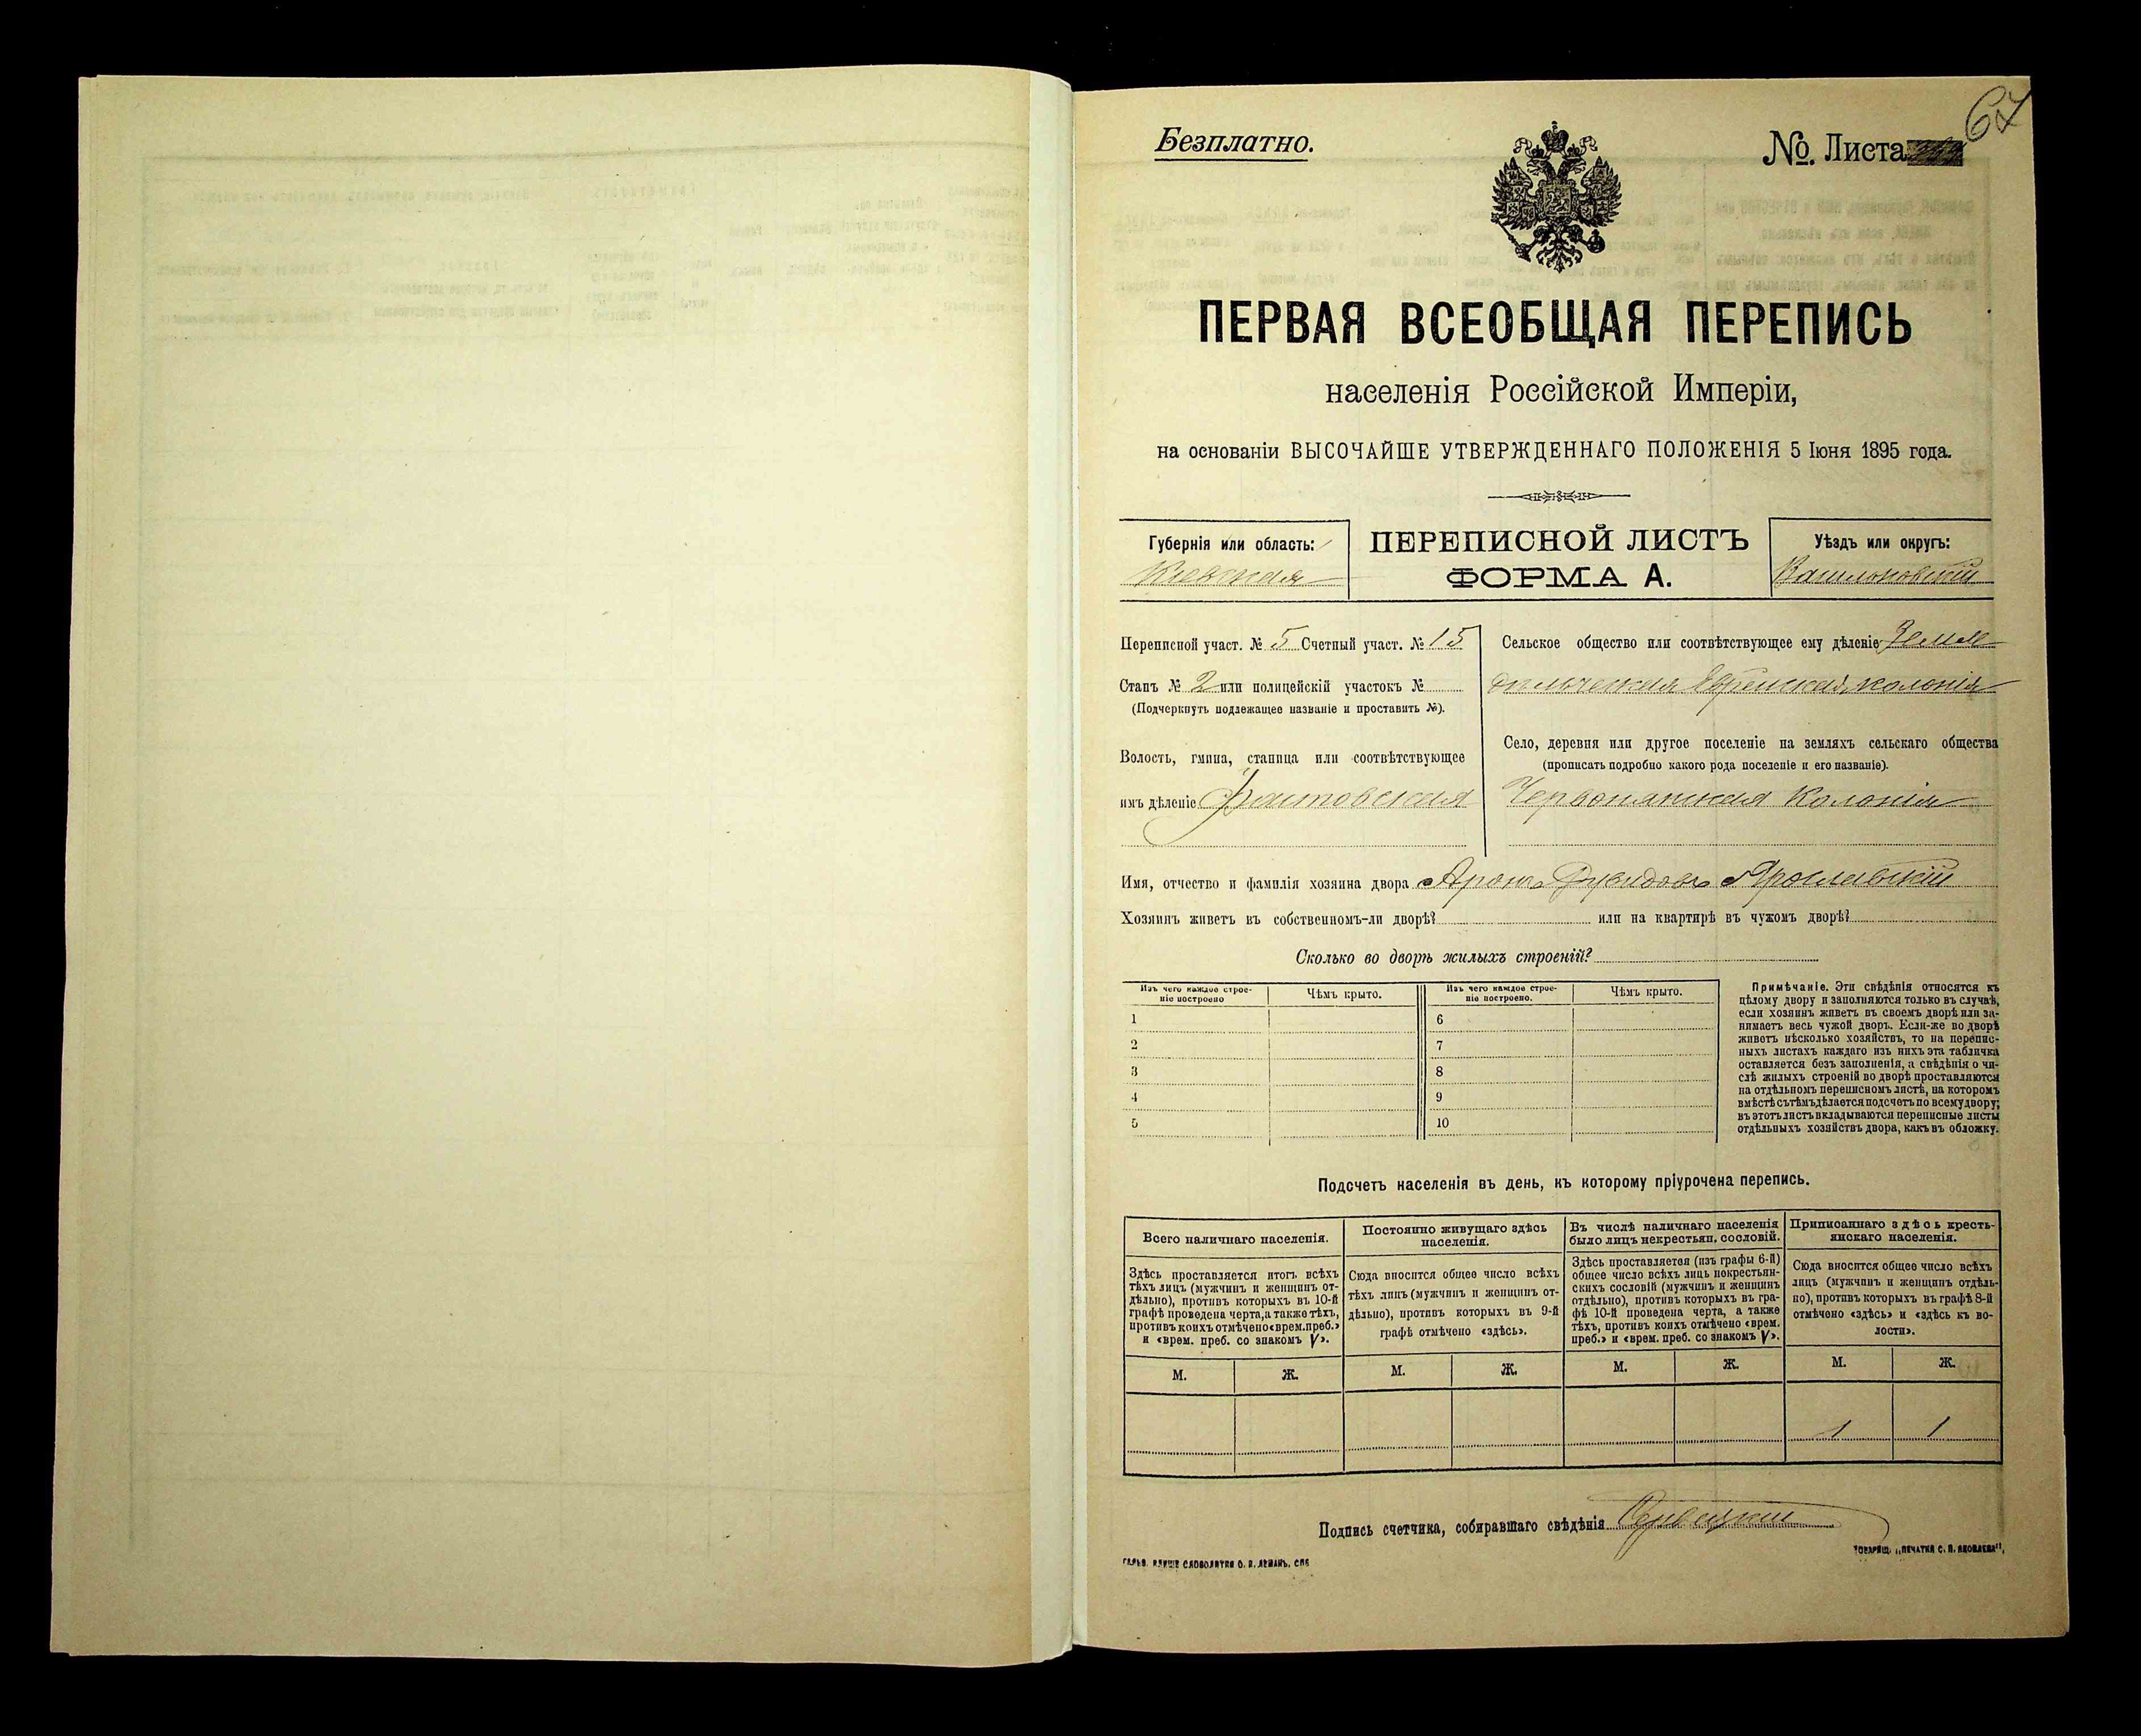 67
Безплатно.
№. Листа
ПЕРВАЯ ВСЕОБЩАЯ ПЕРЕПИСЬ
населенія Россійской Имперіи,
на основаніи ВЫСОЧАЙШЕ УТВЕРЖДЕННАГО ПОЛОЖЕНІЯ 5 Іюня 1895 года.
Губернія или область:
Кіевская
ПЕРЕПИСНОЙ ЛИСТЪ
ФОРМА А.
Уѣздъ или округъ:
Васильковскій
Переписной участ. № 5 Счетный участ. № 15
Станъ № 2 или полицейскій участокъ №
(Подчеркнуть подлежащее названіе и проставить №).
Волость, гмина, станица или соотвѣтствующее
имъ дѣленіе Фастовская
Сельское общество или соотвѣтствующее ему дѣленіе Земле
дѣльческая Еврейская колонія
Село, деревня или другое поселеніе на земляхъ сельскаго общества
(прописать подробно какого рода поселеніе и его названіе).
Червонянская Колонія
Имя, отчество и фамилія хозяина двора Аронъ Дувидовъ Ярославскій
Хозяинъ живетъ въ собственномъ-ли дворѣ? или на квартирѣ въ чужомъ дворѣ?
Сколько во дворѣ жилыхъ строеній?
Изъ чего каждое строе-
ніе построено
Чѣмъ крыто.
Изъ чего каждое строе-
ніе построено.
Чѣмъ крыто.
1 6
2 7
3 8
4 9
5 10
Примѣчаніе. Эти свѣдѣнія относятся къ
цѣлому двору и заполняются только въ случаѣ,
если хозяинъ живетъ въ своемъ дворѣ или за-
нимаетъ весь чужой дворъ. Если-же во дворѣ
живетъ нѣсколько хозяйствъ, то на перепис-
ныхъ листахъ каждаго изъ нихъ эта табличка
оставляется безъ заполненія, а свѣдѣнія о чи-
слѣ жилыхъ строеній во дворѣ проставляются
на отдѣльномъ переписномъ листѣ, на которомъ
вмѣстѣ съ тѣмъ дѣлается подсчетъ по всему двору;
въ этотъ листъ вкладываются переписные листы
отдѣльныхъ хозяйствъ двора, какъ въ обложку.
Подсчетъ населенія въ день, къ которому пріурочена перепись.
Всего наличнаго населенія.
Здѣсь проставляется итогъ всѣхъ
тѣхъ лицъ (мужчинъ и женщинъ от-
дѣльно), противъ которыхъ въ 10-й
графѣ проведена черта, а также тѣхъ,
противъ коихъ отмѣчено «врем. преб.»
и «врем. преб. со знакомъ V».
Постоянно живущаго здѣсь
населенія.
Сюда вносится общее число всѣхъ
тѣхъ лицъ (мужчинъ и женщинъ от-
дѣльно), противъ которыхъ въ 9-й
графѣ отмѣчено «здѣсь».
Въ числѣ наличнаго населенія
было лицъ некрестьян. сословій.
Здѣсь проставляется (изъ графы 6-й)
общее число всѣхъ лицъ некрестьян-
скихъ сословій (мужчинъ и женщинъ
отдѣльно), противъ которыхъ въ гра-
фѣ 10-й проведена черта, а также
тѣхъ, противъ коихъ отмѣчено «врем.
преб.» и «врем. преб. со знакомъ V».
Приписаннаго здѣсь кресть-
янскаго населенія.
Сюда вносится общее число всѣхъ
лицъ (мужчинъ и женщинъ отдѣль-
но), противъ которыхъ въ графѣ 8-й
отмѣчено «здѣсь» и «здѣсь къ во-
лости».
М. Ж. М. Ж. М. Ж. М. Ж.
1 1
Подпись счетчика, собиравшаго свѣдѣнія
ГАЛЬВ. КЛИШЕ СЛОВОЛИТНИ О. И. ЛЕМАНЪ. СПБ
ТОВАРИЩ. „ПЕЧАТНЯ С. П. ЯКОВЛЕВА",